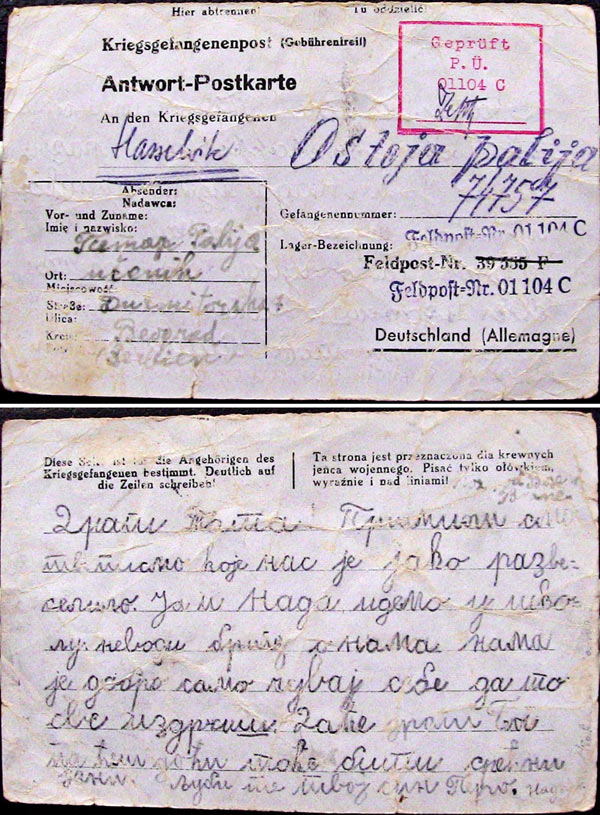 Hier abtrennen! Tu oddzielić!
Kriegsgefangenenpost (Gebührenfrei!)
Antwort-Postkarte
An den Kriegsgefangenen
Geprüft
P. Ü.
01104 C
Hasselvik
Ostoja Palija
Absender:
Nadawca:
Vor- und Zuname:
Imię i nazwisko:
Palija
Ort: učenik
Miejscowość
Straße:
Ulica:
Kreis: Beograd
Serbien
77757
Gefangenennummer: 77757
Lager-Bezeichnung: Feldpost-Nr. 01104 C
Feldpost-Nr. 39535 F
Feldpost-Nr. 01104 C
Deutschland (Allemagne)
Diese Seite ist für die Angehörigen des
Kriegsgefangenen bestimmt. Deutlich auf
die Zeilen schreiben!
Ta strona jest przeznaczona dla krewnych
jeńca wojennego. Pisać tylko ołówkiem,
wyraźnie i nad liniami!
Драги Тата! Примили смо
писмо које нас је јако разве-
селило. Ја и Нада идемо у шко-
лу. неводи бригу о нама. нама
је добро само чувај себе да то
све издржиш. Даће драги Бог
па ћеш доћи
дани. љуби те твој син Перо.